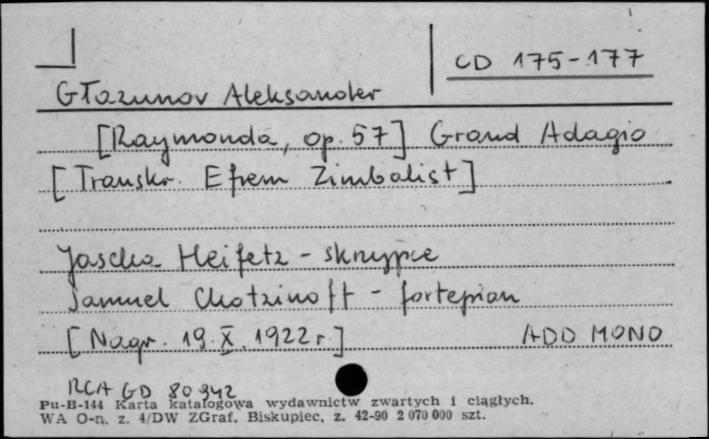 CD 175-177
Głazunov Aleksander
[Raymonda, op. 57] Grand Adagio
[Transkr. Efrem Zimbalist]
Jascha Heifetz - skrzypce
Samuel Chotzinoff - fortepian
[Nagr. 19.X.1922 r.] ADD MONO
RCA GD 80942
Pu-B-144 Karta katalogowa wydawnictw zwartych i ciągłych.
WA O-n. z. 4/DW ZGraf. Biskupiec, z. 42-90 2 070 000 szt.